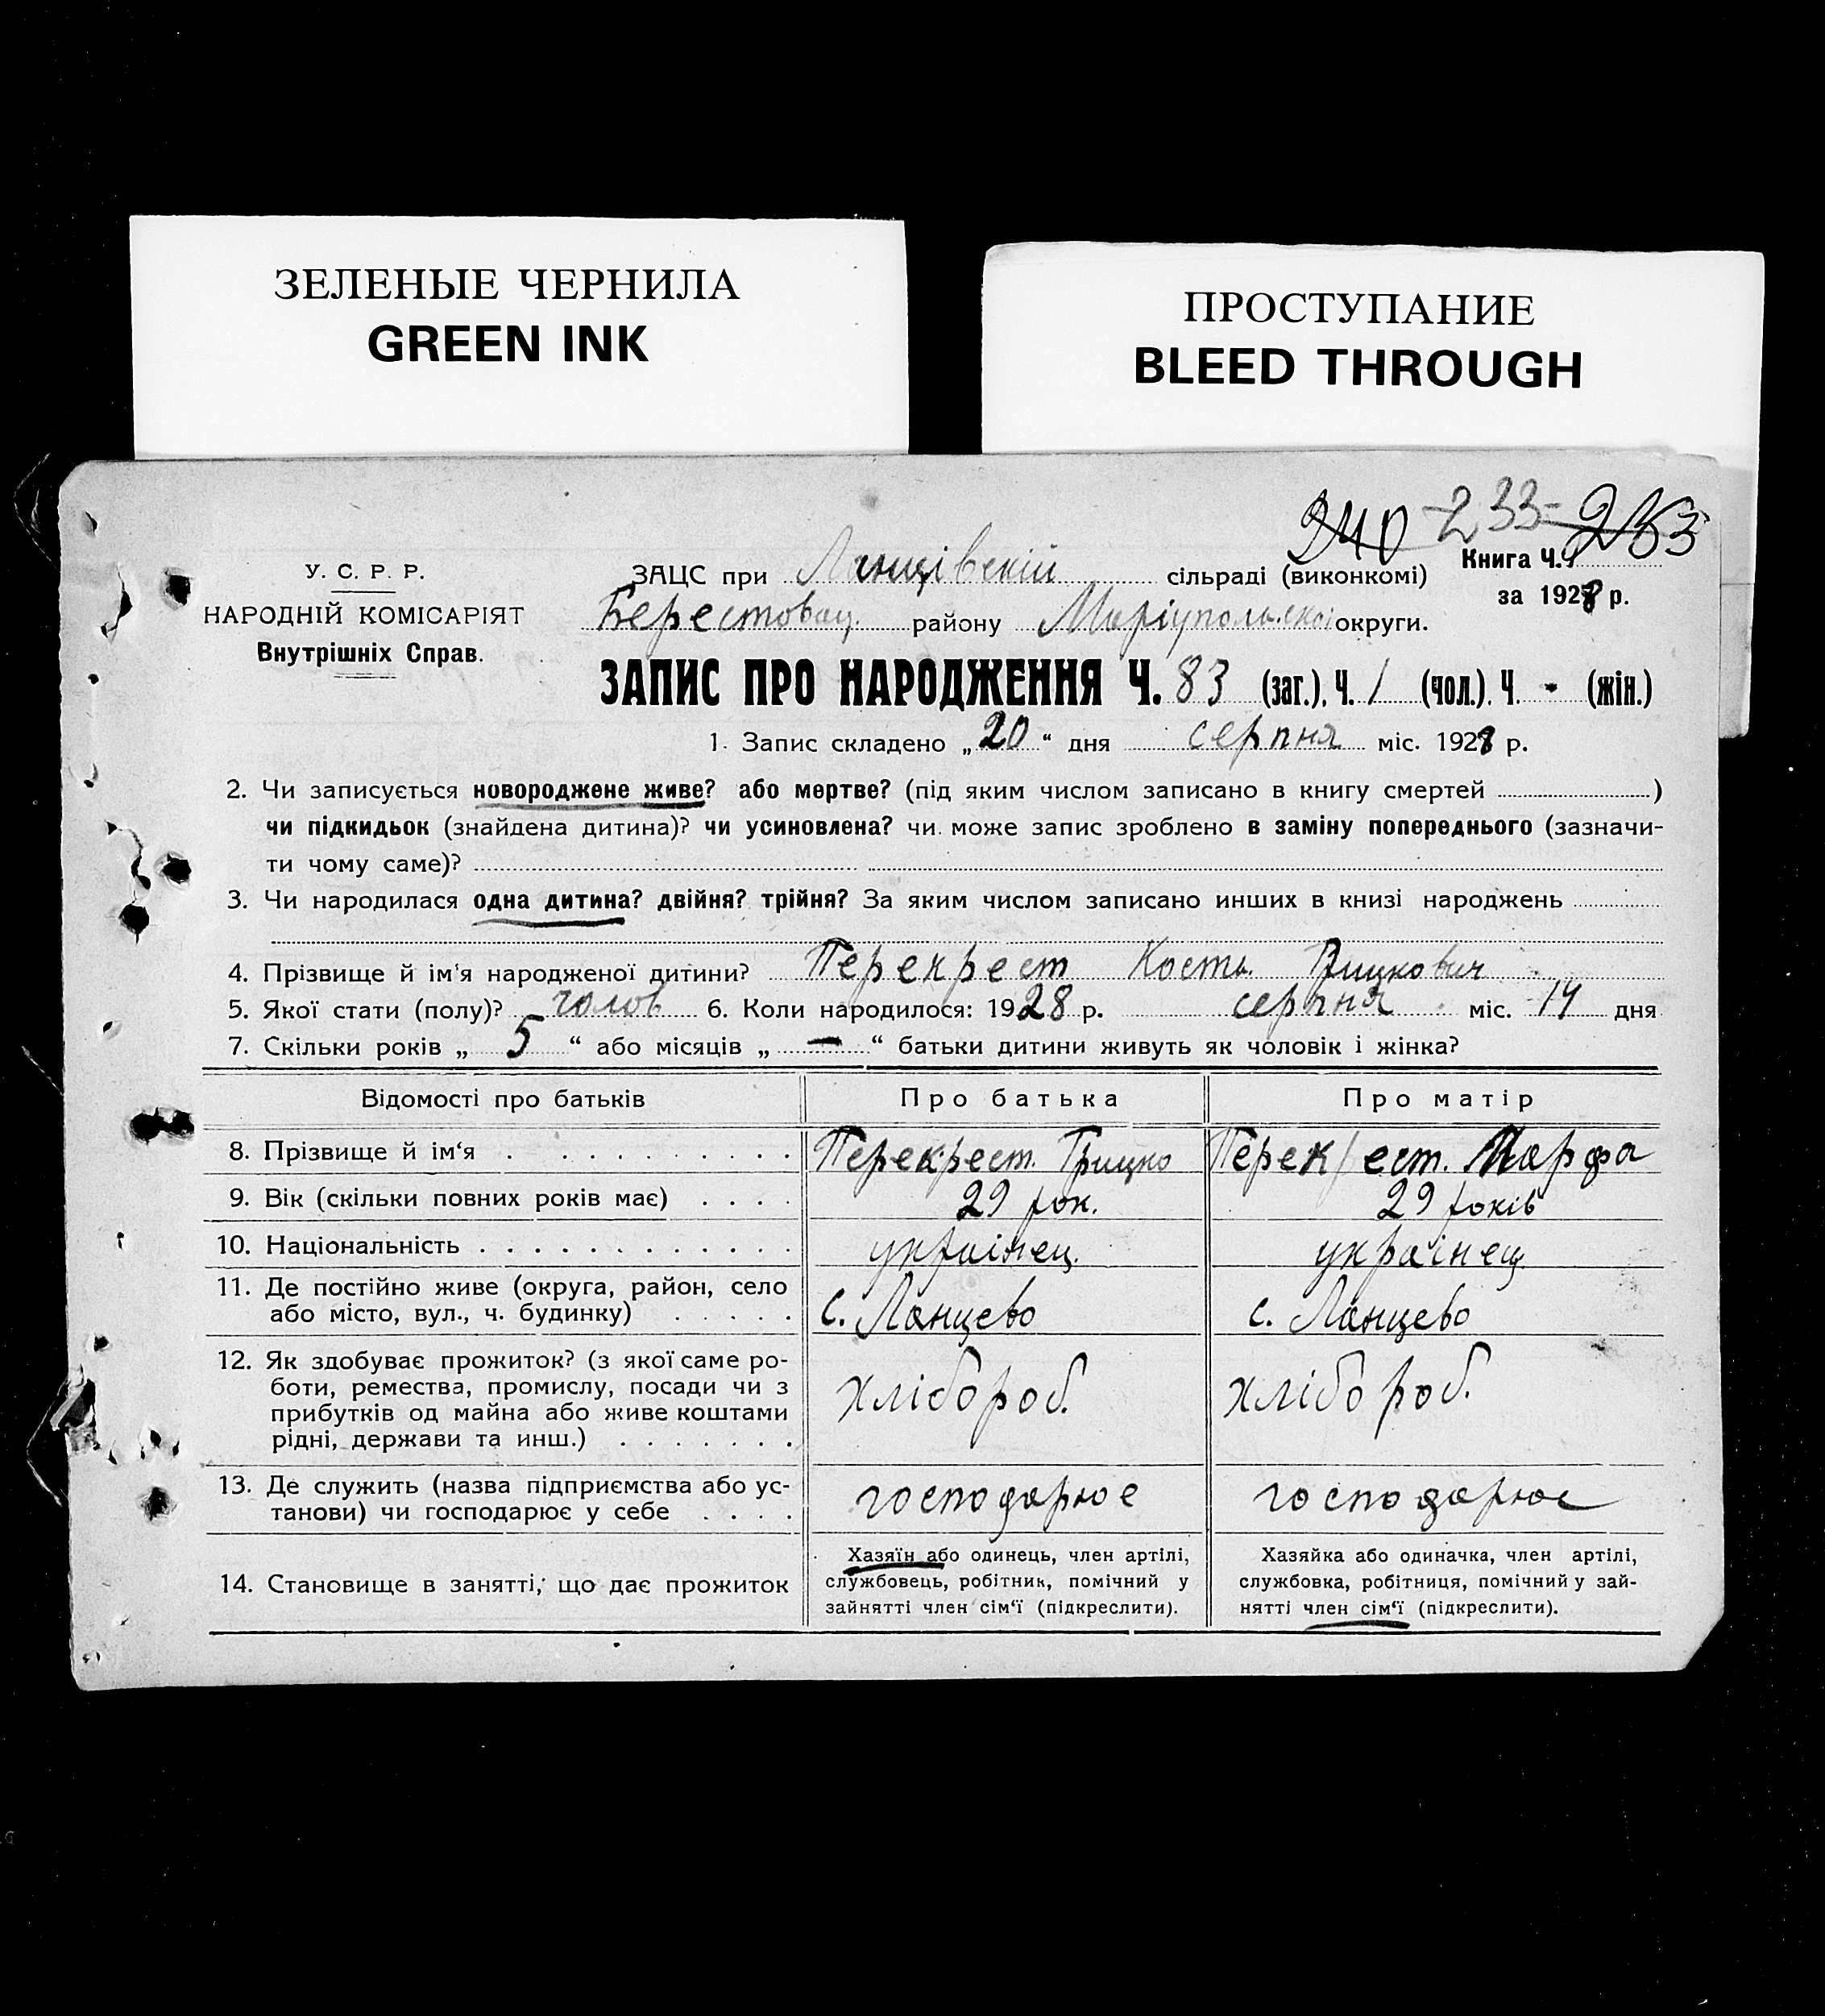 ЗЕЛЕНЫЕ ЧЕРНИЛА
GREEN INK
ПРОСТУПАНИЕ
BLEED THROUGH
240 233 253
У. С. Р. Р.
НАРОДНІЙ КОМІСАРІЯТ
Внутрішніх Справ.
ЗАЦС при Ланцівській сільраді (виконкомі)
Книга Ч.
за 1928 р.
Берестовец. району Маріупольської округи.
ЗАПИС ПРО НАРОДЖЕННЯ Ч. 83 (заг.), Ч. 1 (чол.). Ч. - (жін.)
1. Запис складено „20“ дня серпня міс. 1928 р.
2. Чи записується новороджене живе? або мертве? (під яким числом записано в книгу смертей )
чи підкидьок (знайдена дитина)? чи усиновлена? чи може запис зроблено в заміну попереднього (зазначи-
ти чому саме)?
3. Чи народилася одна дитина? двійня? трійня? За яким числом записано инших в книзі народжень
4. Прізвище й ім‘я народженої дитини? Перекрест Кость Грицкович
5. Якої стати (полу)? чолов 6. Коли народилося: 1928 р. серпня міс. 14 дня
7. Скільки років „ 5 “ або місяців „ — “ батьки дитини живуть як чоловік і жінка?
Відомості про батьків Про батька Про матір
8. Прізвище й ім‘я Перекрест. Грицко Перекрест. Марфа
9. Вік (скільки повних років має) 29 рок. 29 років
10. Національність українец. українец
11. Де постійно живе (округа, район, село
або місто, вул., ч. будинку) с. Ланцево с. Ланцево
12. Як здобуває прожиток? (з якої саме ро-
боти, ремества, промислу, посади чи з
прибутків од майна або живе коштами
рідні, держави та инш.) хлібороб. хлібороб.
13. Де служить (назва підприємства або ус-
танови) чи господарює у себе господарює господарює
14. Становище в занятті, що дає прожиток
Хазяїн або одинець, член артілі,
службовець, робітник, помічний у
зайнятті член сім‘ї (підкреслити).
Хазяйка або одиначка, член артілі,
службовка, робітниця, помічний у зай-
нятті член сім‘ї (підкреслити).